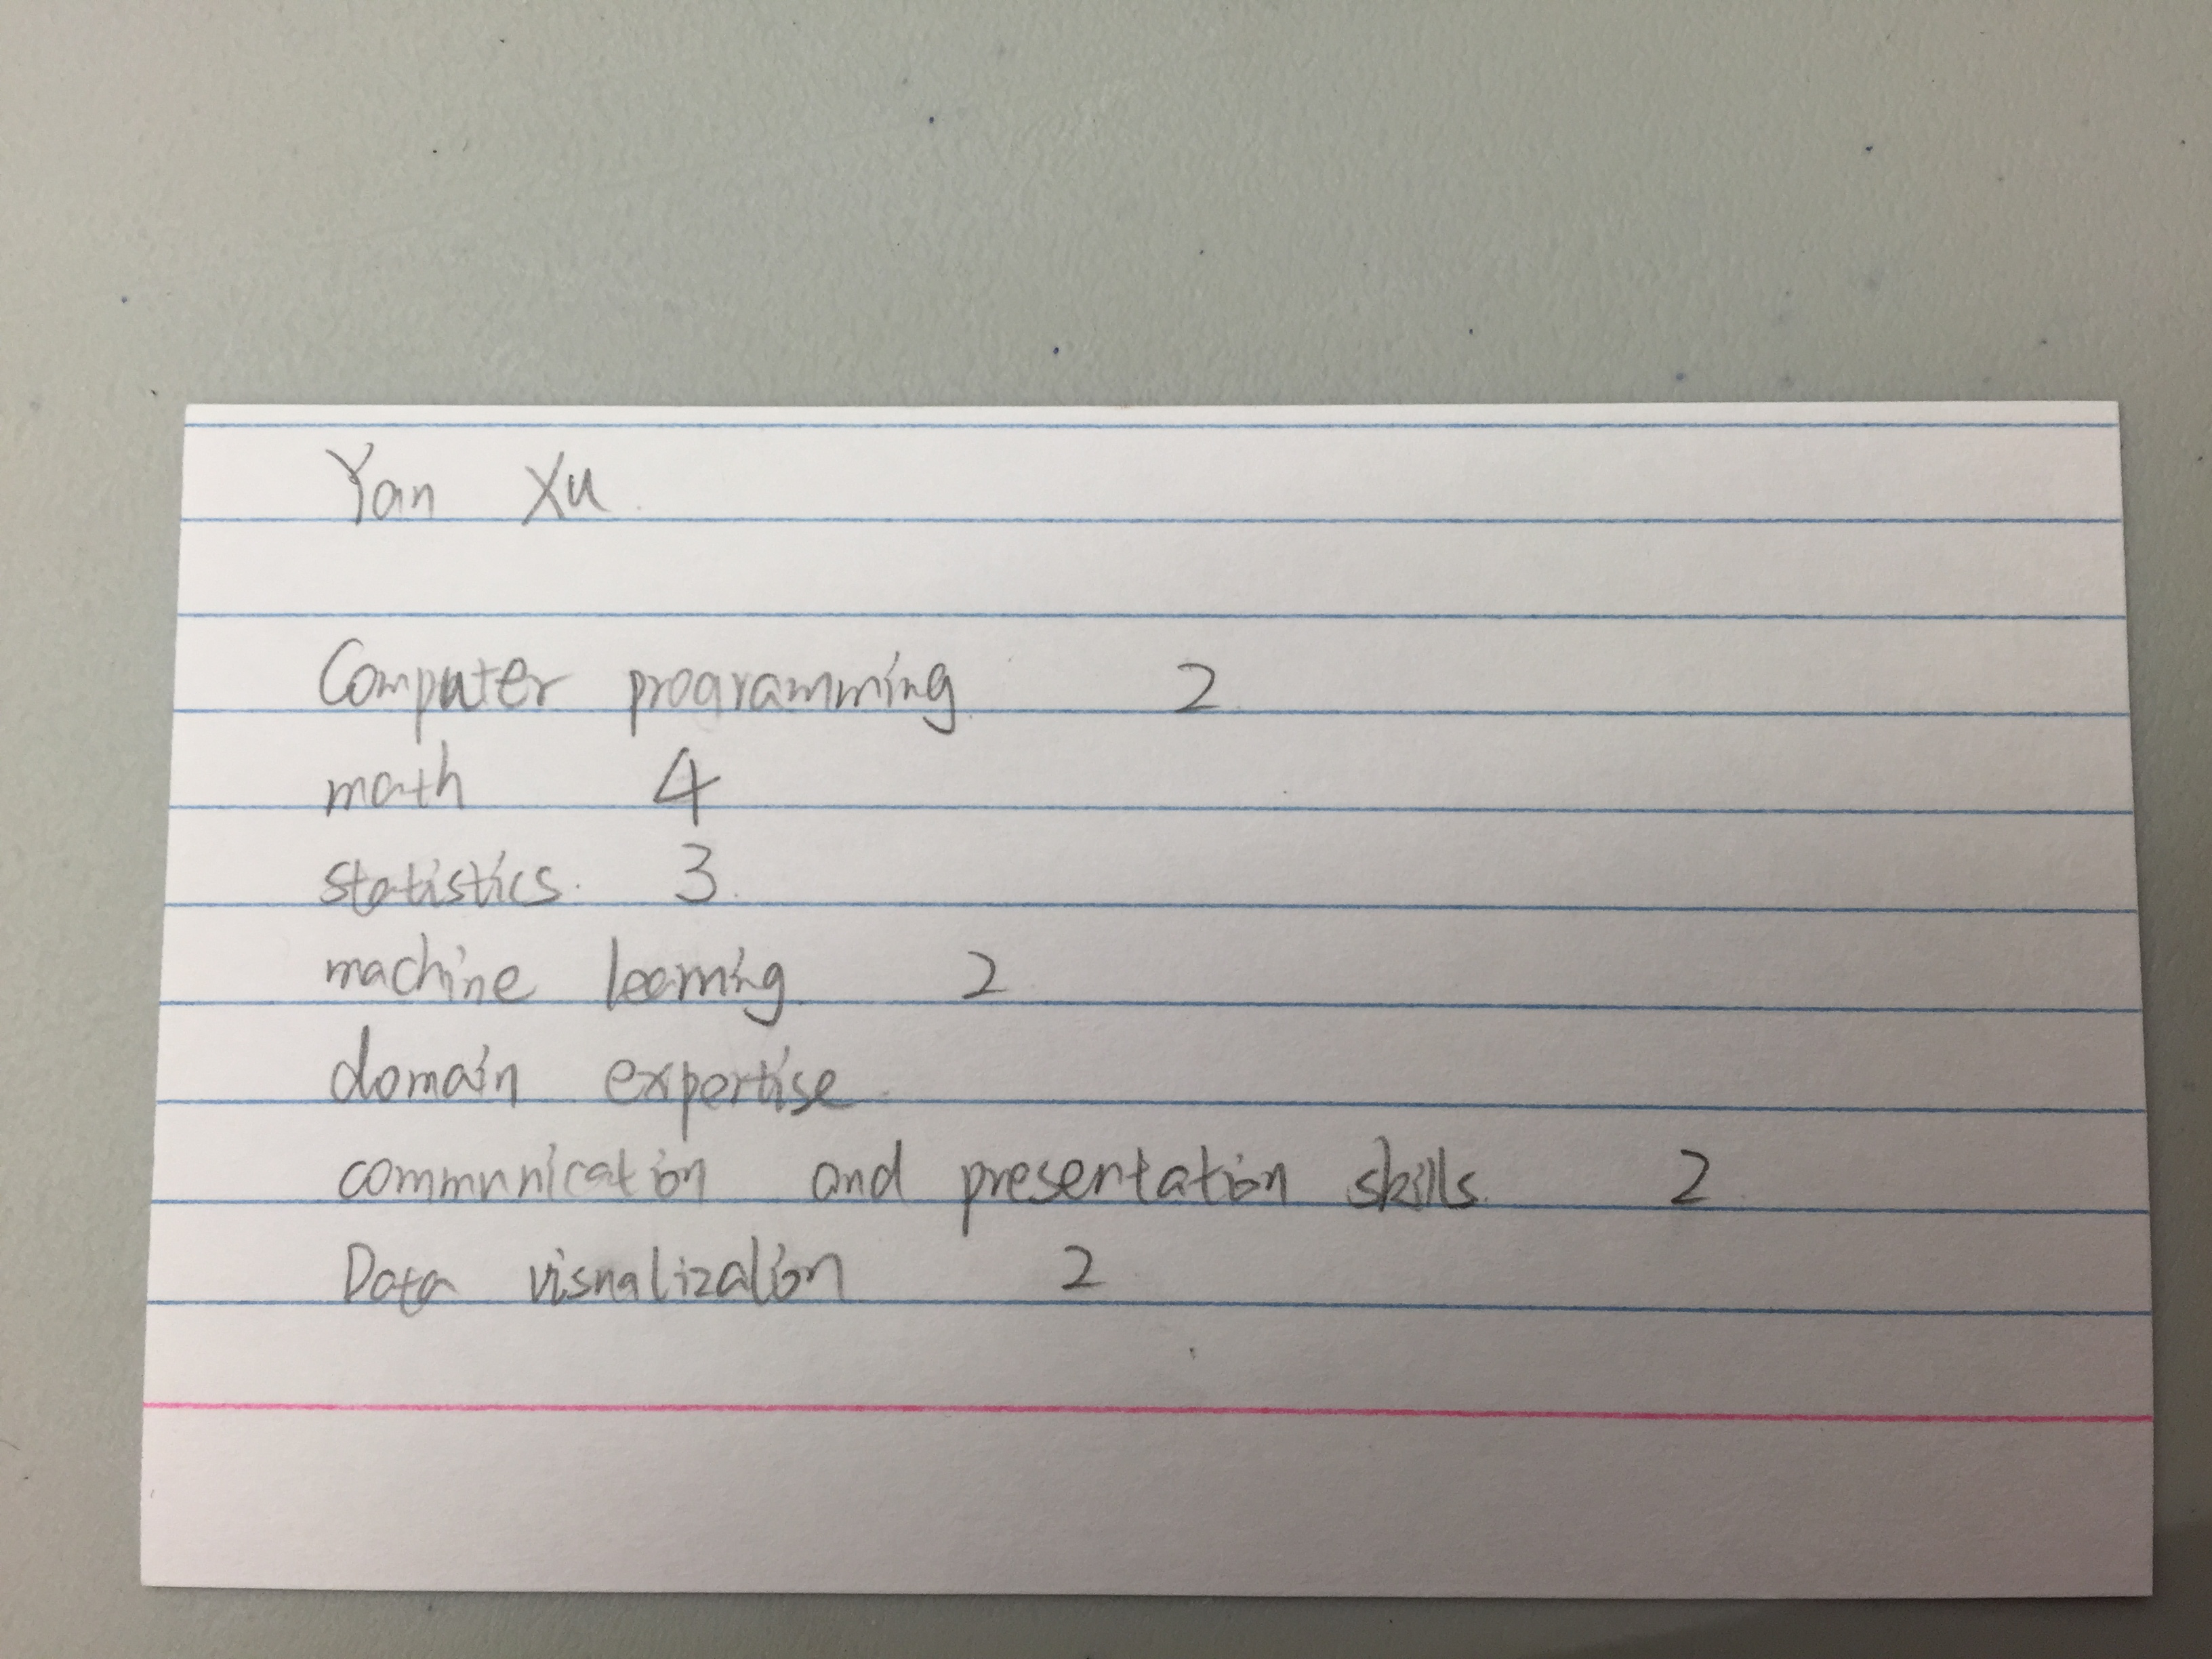 Yan Xu
Computer proaramming 2
math 4
statistics. 3
machine learning 2
domain expertise
communication and presentation skills. 2
Data visualization 2